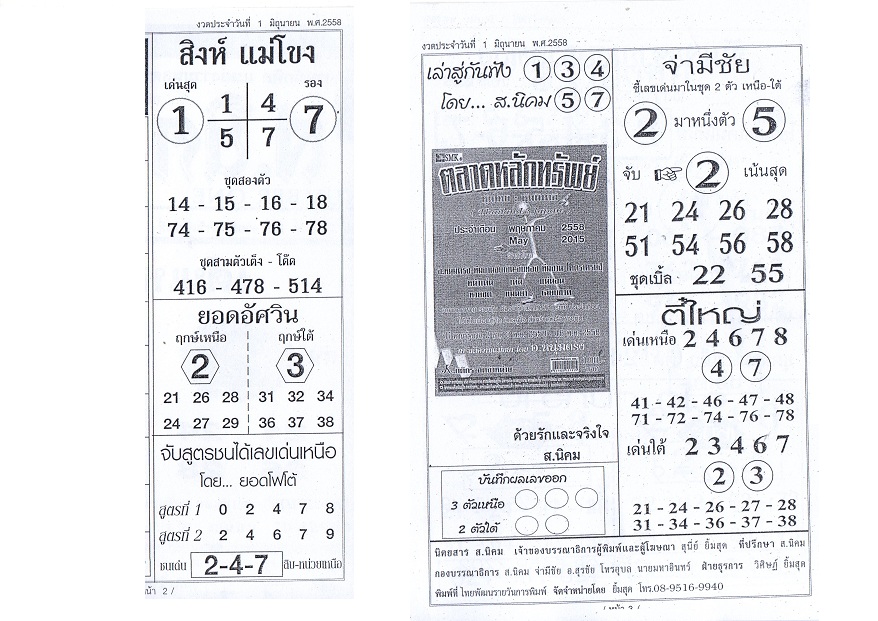 งวดประจำวันที่ 1 มิถุนายน พ.ศ.2558
สิงห์ แม่โขง
เด่นสุด รอง
1 1 4 7
5 7
ชุดสองตัว
14 - 15 - 16 - 18
74 - 75 - 76 - 78
ชุดสามตัวเต็ง - โต๊ด
416 - 478 - 514
ยอดอัศวิน
ฤกษ์เหนือ ฤกษ์ใต้
2 3
21 26 28 31 32 34
24 27 29 36 37 38
จับสูตรชนได้เลขเด่นเหนือ
โดย... ยอดโฟโต้
สูตรที่ 1 0 2 4 7 8
สูตรที่ 2 2 4 6 7 9
ชนเด่น 2-4-7 สิบ-หน่วยเหนือ
หน้า 2 /
งวดประจำวันที่ 1 มิถุนายน พ.ศ.2558
เล่าสู่กันฟัง 1 3 4
โดย... ส.นิคม 5 7
SMK
ตลาดหลักทรัพย์
ประจำเดือน พฤษภาคม 2558
May 2015
ด้วยรักและจริงใจ
ส.นิคม
บันทึกผลเลขออก
3 ตัวเหนือ
2 ตัวใต้
จ่ามีชัย
ชี้เลขเด่นมาในชุด 2 ตัว เหนือ-ใต้
2 มาหนึ่งตัว 5
จับ 2 เน้นสุด
21 24 26 28
51 54 56 58
ชุดเบิ้ล 22 55
ตี๋ใหญ่
เด่นเหนือ 2 4 6 7 8
4 7
41 - 42 - 46 - 47 - 48
71 - 72 - 74 - 76 - 78
เด่นใต้ 2 3 4 6 7
2 3
21 - 24 - 26 - 27 - 28
31 - 34 - 36 - 37 - 38
นิตยสาร ส.นิคม เจ้าของบรรณาธิการผู้พิมพ์และผู้โฆษณา สุนีย์ ยิ้มสุด ที่ปรึกษา ส.นิคม
กองบรรณาธิการ ส.นิคม จ่ามีชัย อ.สุรชัย โหรอุบล นายมหาอินทร์ ฝ่ายธุรการ วิศิษฏ์ ยิ้มสุด
พิมพ์ที่ ไทยพัฒนรายวันการพิมพ์ จัดจำหน่ายโดย ยิ้มสุด โทร.08-9516-9940
/ หน้า 3 /